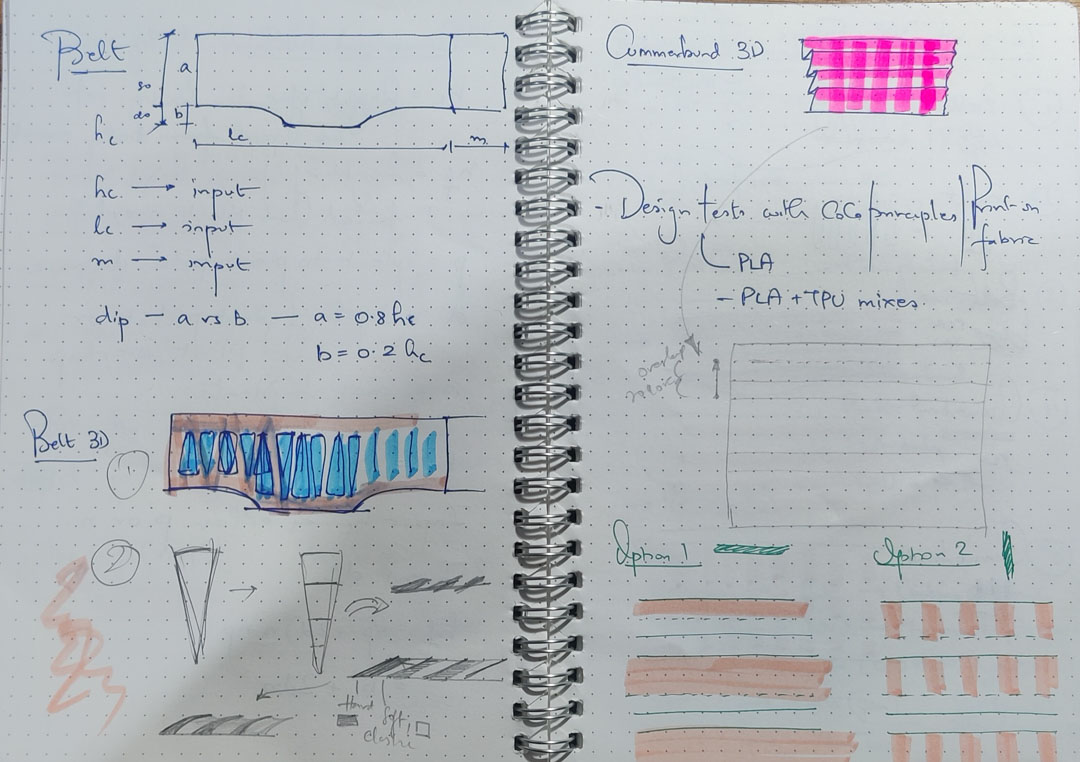 Belt
a
80
20
b
hc
lc
m
hc → input
lc → input
m → input
dip — a vs b — a = 0.8 hc
b = 0.2 hc
Belt 3D
1.
2
Hard
Soft /
elastic
Cummerbund 3D
- Design tests with CoCo principles | Print-on
fabric
PLA
- PLA + TPU mixes.
overlap
Option 1
Option 2